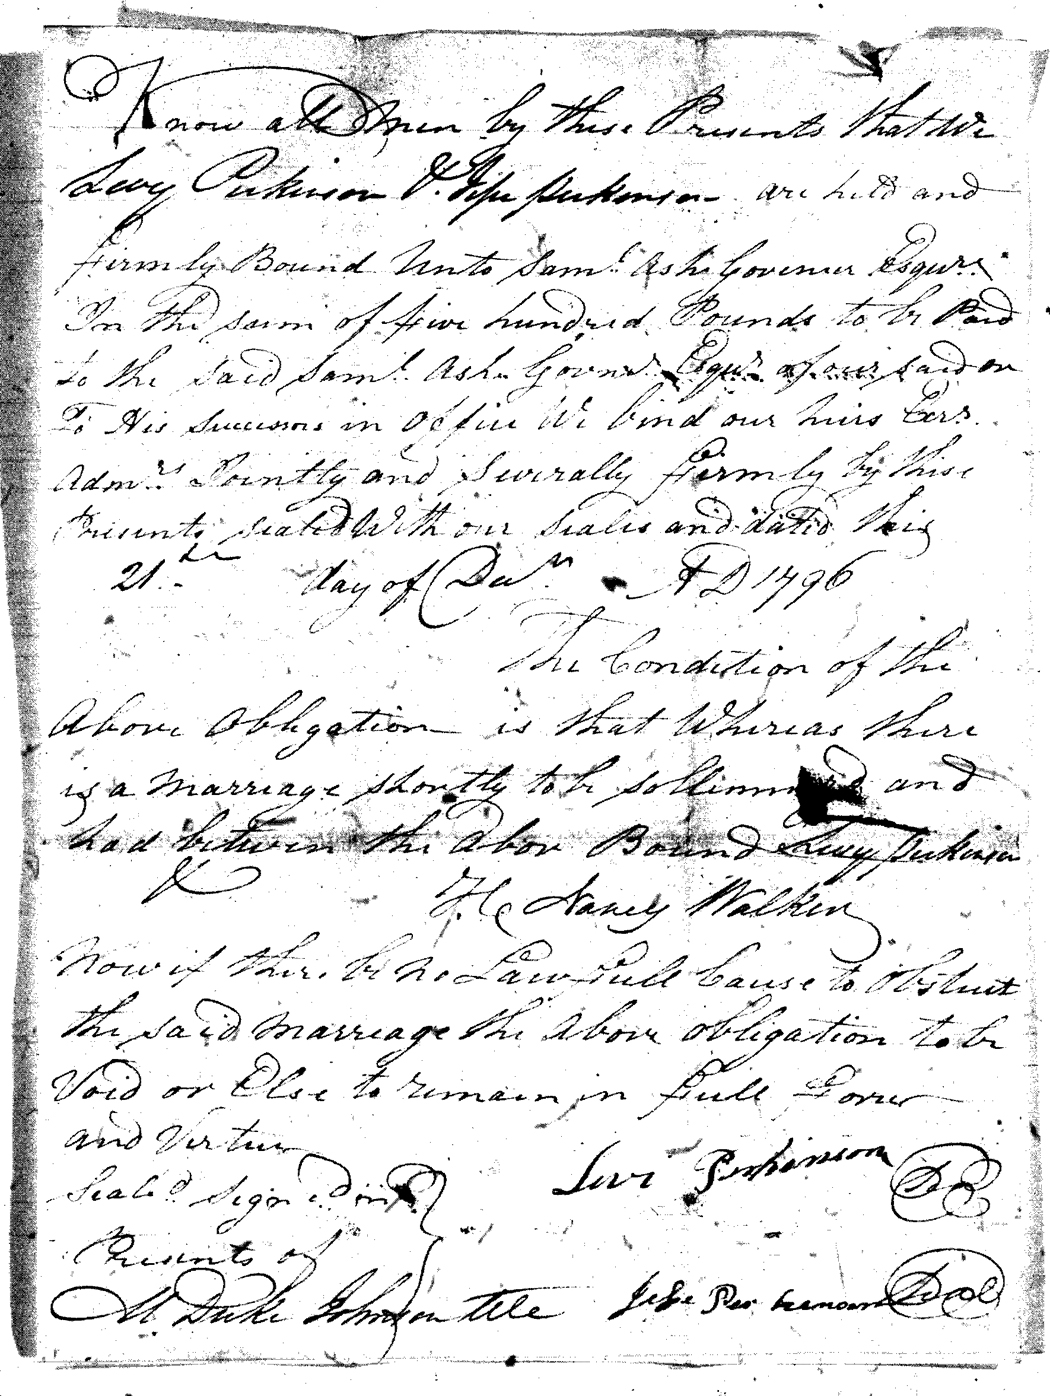 Know all men by these Presents that We
Levy Perkinson & Jese perkinson are held and
firmly Bound Unto Saml. Ash Govener Esqure.
In the sum of five hundred Pounds to be Paid
to the said Saml. Ash Govnr. Esqur. afoursaid or
To His Successors in office We bind our heirs Exrs.
Admrs. Jointly and Severally firmly by these
Presents sealed With our seales and dated this
21st day of Decr. AD 1796
The Condition of the
Above Obligation is that Whereas there
is a Marriage shortly to be sollemnized and
had between the Abov Bound Levy perkinson
& Nancy Walker
Now if there be no Law full Cause to Obstruct
the said Marriage the Above obligation to be
Void or Else to remain in full Force
and Vertue
Seald. Signed in
Presents of
M Duke Johnson
Levi Perkinson Seal
Jese Perkenson Seal